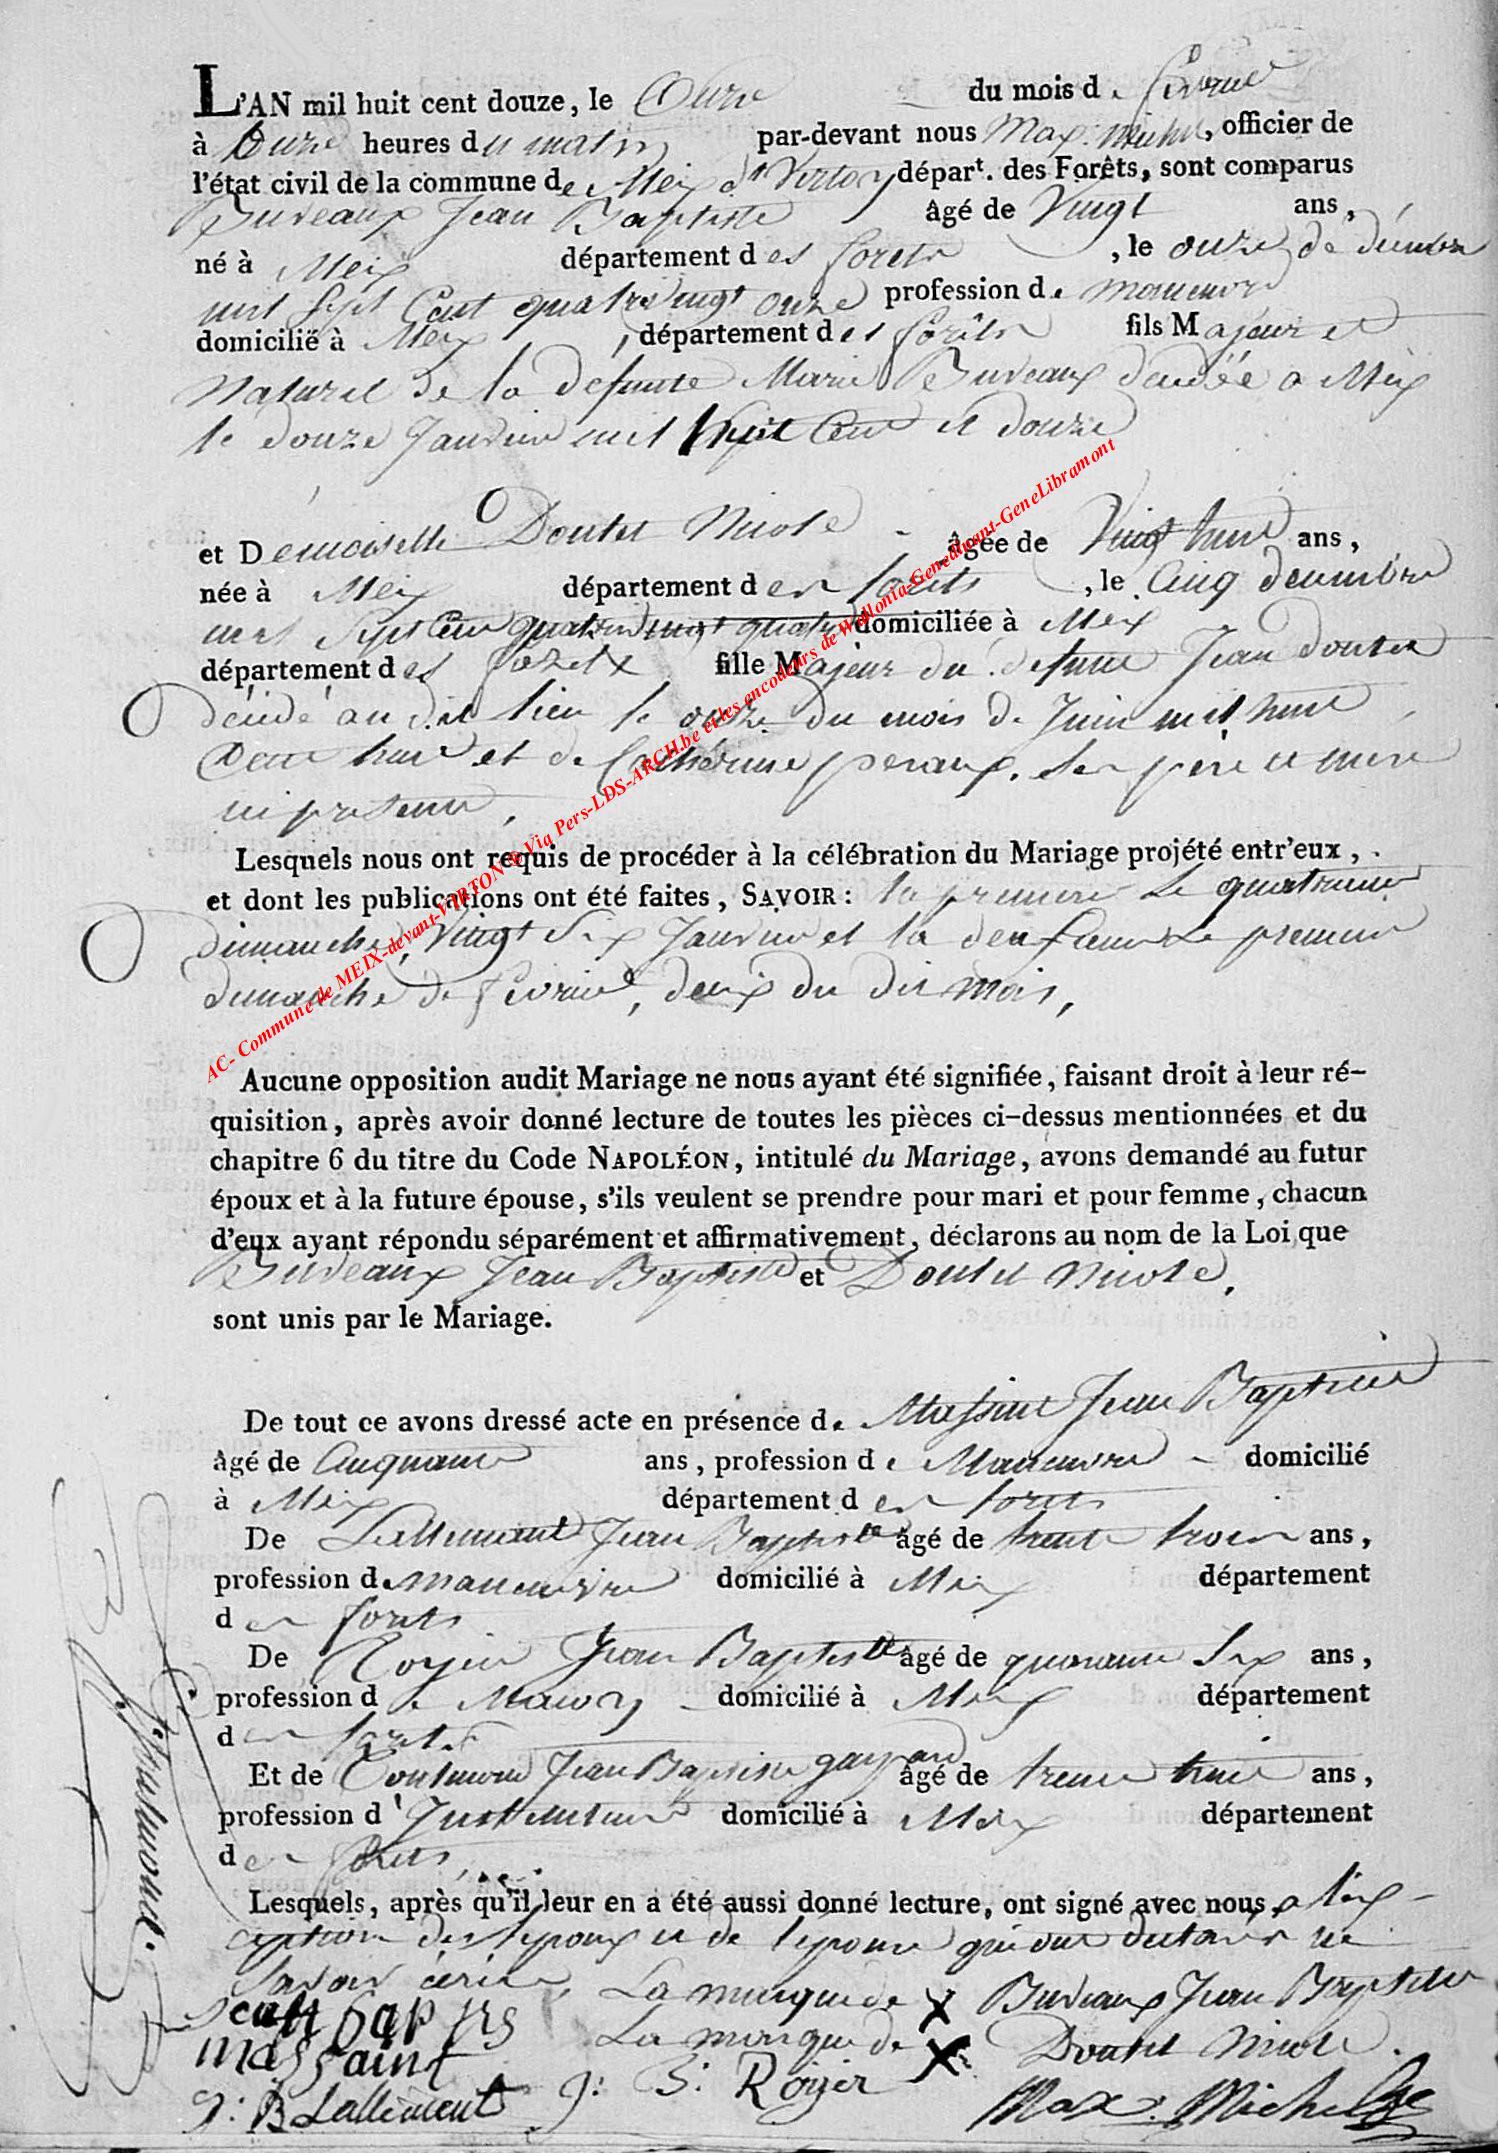 L'AN mil huit cent douze, le Onze du mois de février
à Onze heures du matin par-devant nous Max. Michel, officier de
l'état civil de la commune de Meix dt Virton dépar<sup>t</sup>. des Forêts, sont comparus
Buveaux Jean Baptiste âgé de Vingt ans,
né à Meix département des forets, le onze de décembre
mil sept Cent quatre vingt onze profession de manœuvre
domicilié à Meix, département des forêts fils Majeur et
Naturel de la defunte Marie Buveaux décédée a Meix
le douze Janvier mil huit Cent et douze
et Demoiselle Doutet Nicole âgée de Vingt huit ans,
née à Meix département des forets, le Cinq decembre
mil Sept Cent quatre vingt quatre domiciliée à Meix
département des forets fille Majeur du defunt Jean Doutet
décédé au dit lieu le onze du mois de Juin mil huit
Cent huit et de Catherine peraux, ses père et mere
ci presente,
Lesquels nous ont requis de procéder à la célébration du Mariage projété entr'eux,
et dont les publications ont été faites, SAVOIR: la premiere Le quatrieme
dimanche, Vingt Six Janvier et la deuxieme Le premier
dimanche de fevrier, deux du dit mois,
Aucune opposition audit Mariage ne nous ayant été signifiée, faisant droit à leur ré-
quisition, après avoir donné lecture de toutes les pièces ci-dessus mentionnées et du
chapitre 6 du titre du Code NAPOLÉON, intitulé du Mariage, avons demandé au futur
époux et à la future épouse, s'ils veulent se prendre pour mari et pour femme, chacun
d'eux ayant répondu séparément et affirmativement, déclarons au nom de la Loi que
Buveaux Jean Baptiste et Doutet Nicole,
sont unis par le Mariage.
De tout ce avons dressé acte en présence de Massint Jean Baptiste
âgé de Cinquante ans, profession de Manœuvre domicilié
à Meix département des forets
De Lallement Jean Baptiste âgé de trente trois ans,
profession de manœuvre domicilié à Meix département
des forets
De Royer Jean Baptiste âgé de quarante Six ans,
profession de Maçon domicilié à Meix département
des forets
Et de Toutmond Jean Baptiste gaspard âgé de trente huit ans,
profession d'Instituteur domicilié à Meix département
des forets,
Lesquels, après qu'il leur en a été aussi donné lecture, ont signé avec nous, a l'ex-
ception des l'epoux et de l'epouse qui ont declarés ne
savoir écrire, La marque de X Buveaux Jean Baptiste
La marque de X Doutet Nicole.
Jean bap tis
massaint
J: B Lallement J: B: Royer Max. Michel
AC- Commune de MEIX-devant-VIRTON ® Via Pers-LDS-ARCH.be et les encodeurs de Wallonia-Genedinant-GeneLibramont